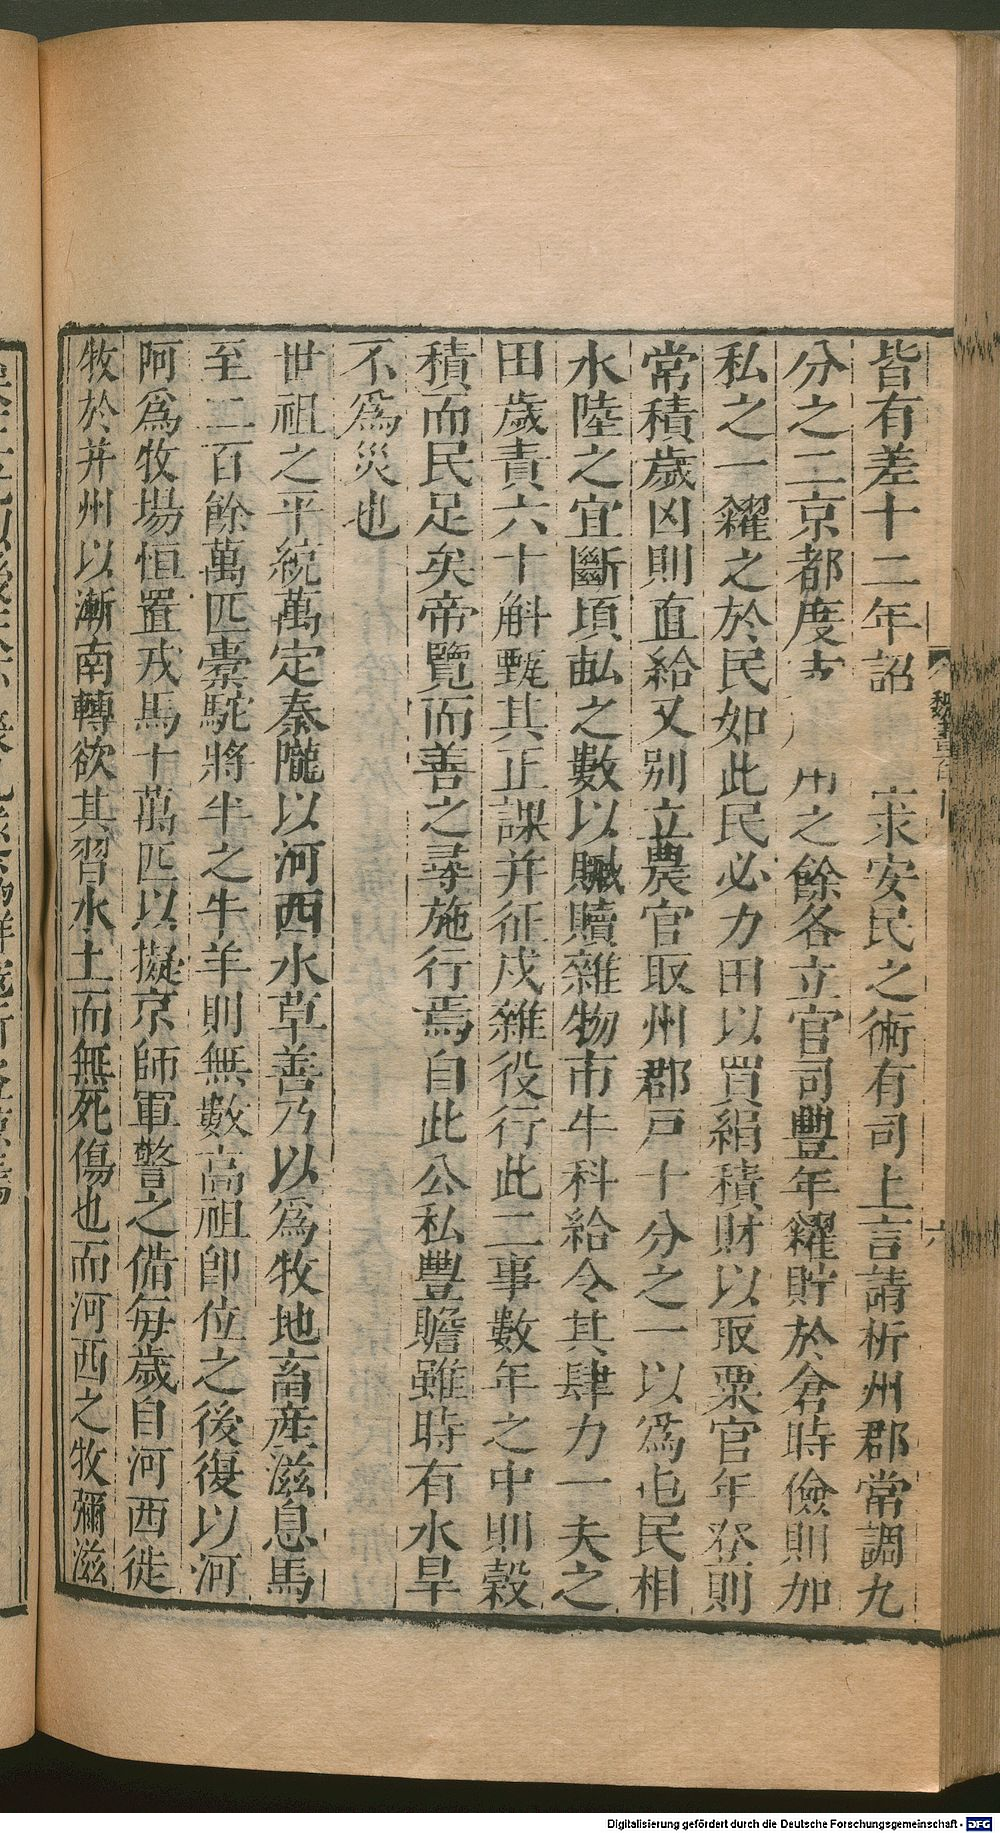 皆有差十二年詔 求安民之術有司上言請析州郡常調九
分之二京都度 用之餘各立官司豐年糴貯於倉時儉則加
私之一糶之於民如此民必力田以買絹積財以取粟官年登則
常積歲凶則直給又別立農官取州郡戸十分之一以爲屯民相
水陸之宜斷頃畝之數以贓贖雜物市牛科給令其肆力一夫之
田歲責六十斛甄其正課并征戍雜役行此二事數年之中則穀
積而民足矣帝覽而善之尋施行焉自此公私豐贍雖時有水旱
不爲災也
世祖之平統萬定秦隴以河西水草善乃以爲牧地畜産滋息馬
至二百餘萬匹橐駝將半之牛羊則無數高祖卽位之後復以河
阿爲牧場恒置戎馬十萬匹以擬京師軍警之備每歲自河西徙
牧於并州以漸南轉欲其習水土而無死傷也而河西之牧彌滋
六
Digitalisierung gefördert durch die Deutsche Forschungsgemeinschaft - DFG